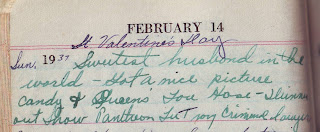 FEBRUARY 14
St Valentine's Day
Sun. 1937 Sweetest husband in the
world - Got a nice picture
candy & Queens Lou Hose - Dinner
out show Pantheon
my Criminal Lawyer